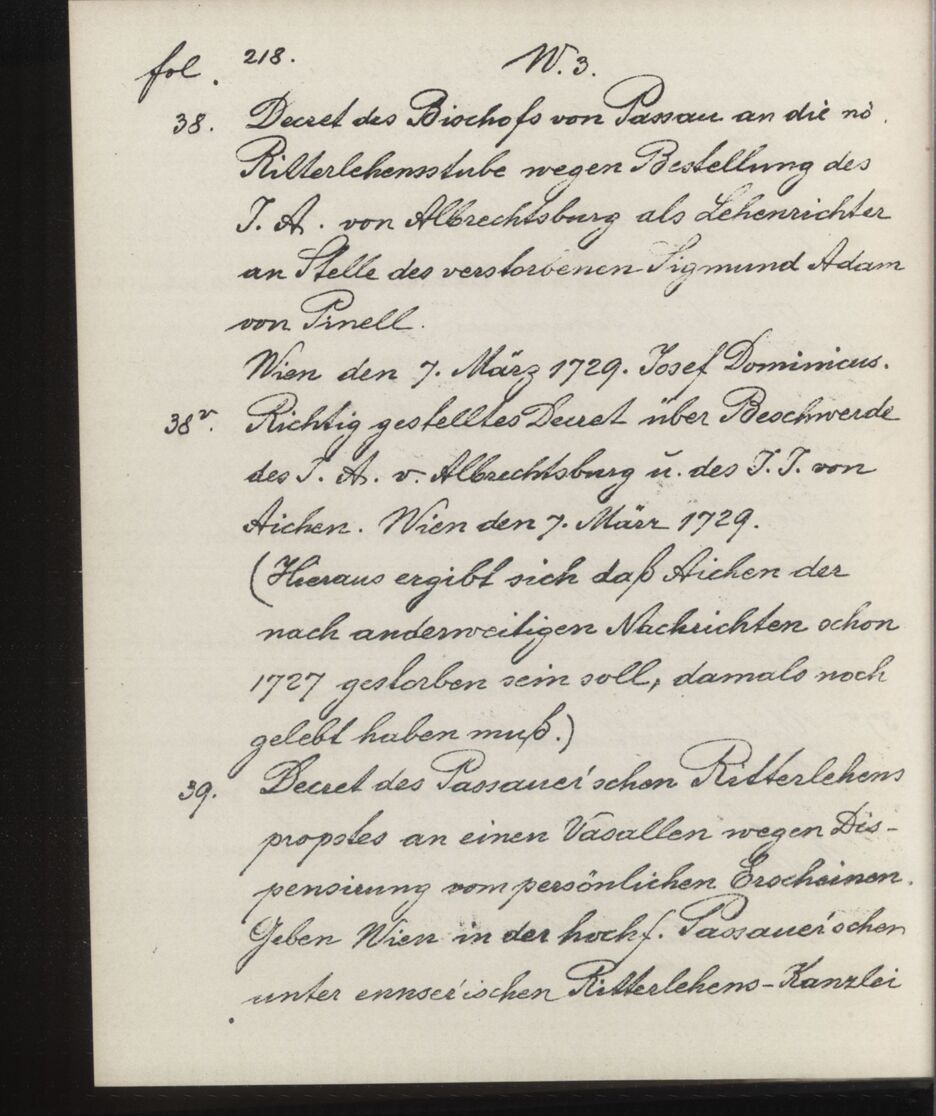 fol. 218. W. 3.
38. Decret des Bischofs von Passau an die nö.
Ritterlehensstube wegen Bestellung des
J. A. von Albrechtsburg als Lehenrichter
an Stelle des verstorbenen Sigmund Adam
von Prnell.
Wien den 7. März 1729. Josef Dominicus.
38v. Richtig gestelltes Decret über Beschwerde
des J. A. v. Albrechtsburg u. des J. J. von
Aichen. Wien den 7. März 1729.
(Hieraus ergibt sich daß Aichen der
nach anderweitigen Nachrichten schon
1727 gestorben sein soll, damals noch
gelebt haben muß.)
39. Decret des Passauer'schen Ritterlehens
propstes an einen Vasallen wegen Dis-
pensirung vom persönlichen Erscheinen.
Geben Wien in der hochf. Passauer'schen
unter ennser'ischen Ritterlehens-Kanzlei